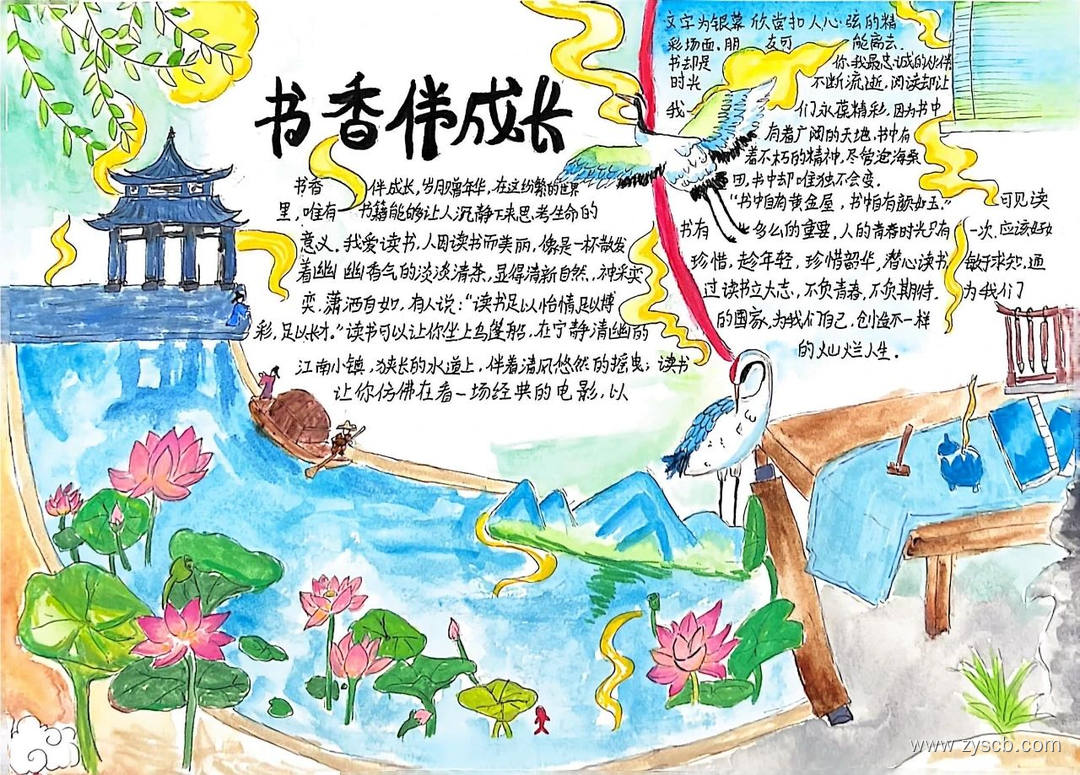 书香伴成长
书香 伴成长,岁月富年华,在这纷繁的世界
里,唯有 书籍能够让人沉静下来思考生命的
意义。我爱读书,人因读书而美丽,像是一杯散发
着幽 幽香气的淡淡清茶,显得清新自然,神采奕
奕,潇洒自如,有人说:“读书足以怡情,足以博
彩,足以长才。”读书可以让你坐上乌篷船,在宁静清幽的
江南小镇,狭长的水道上,伴着清风悠然的摇曳;读书
让你仿佛在看一场经典的电影,以
文字为银幕 欣赏扣人心弦的精
彩场面。朋 友可 能离去,
书却是 你我最忠诚的伙伴
时光 不断流逝,阅读却让
我 们永葆精彩,因为书中
有着广阔的天地,书中有
着不朽的精神,尽管沧海桑
田,书中却唯独不会变。
“书中自有黄金屋,书中自有颜如玉。” 可见读
书有 多么的重要,人的青春时光只有 一次,应该好好
珍惜,趁年轻,珍惜韶华,潜心读书 敏于求知,通
过读书立大志,不负青春,不负期待, 为我们
的国家,为我们自己,创造不一样
的灿烂人生。
www.zyscb.com